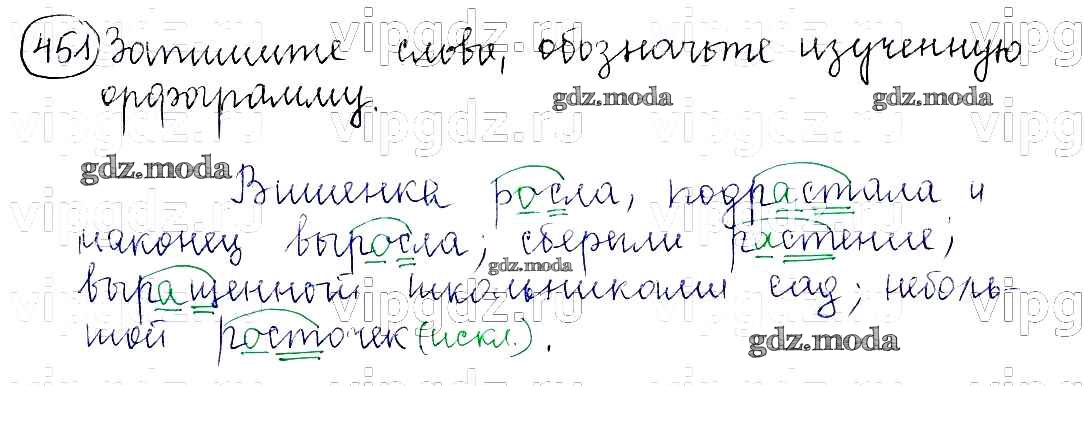 451 Запишите слова, обозначьте изученную
орфограмму.
Вишенка росла, подрастала и
наконец выросла; сберегли растение;
выращенный школьниками сад; неболь-
шой росточек (искл.).
gdz.moda
gdz.moda
gdz.moda
gdz.moda
gdz.moda
vipgdz.ru